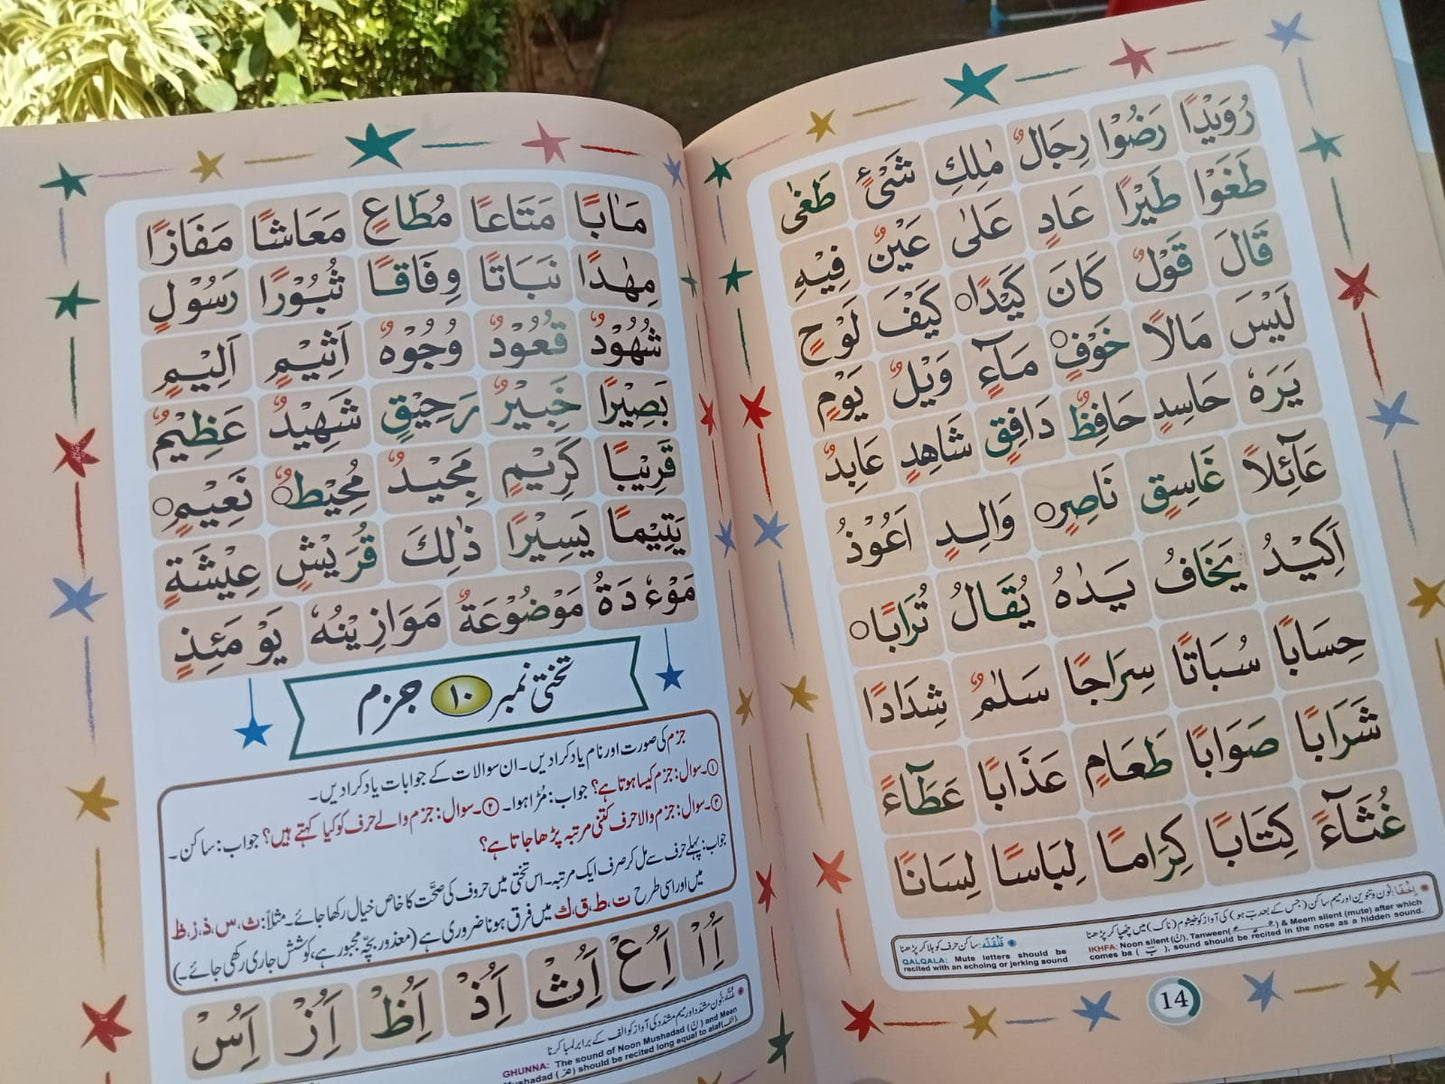 رُوَيْدًا رَضُوْا رِجَالٌ مٰلِكِ شَیْءٍ طَغٰى
طَغَوْا طَيْرًا عَادٍ عَلٰى عَيْنٌ فِيْهِ
قَالَ قَوْلٌ كَانَ كَيْدًا كَيْفَ لَوْحٍ
لَيْسَ مَالًا خَوْفٍ مَآءٍ وَيْلٌ يَوْمٍ
يَرَهٗ حَاسِدٍ حَافِظٌ دَافِقٍ شَاهِدٍ عَابِدٌ
عَآئِلًا غَاسِقٍ نَاصِرٍ وَالِدٍ اَعُوْذُ
اَكِيْدُ يَخَافُ يَدٰهُ يُقَالُ تُرَابًا
حِسَابًا سُبَاتًا سِرَاجًا سَلٰمٌ شِدَادًا
شَرَابًا صَوَابًا طَعَامٍ عَذَابًا عَطَآءً
غُثَآءً كِتَابًا كِرَامًا لِبَاسًا لِسَانًا
اِخْفَا: نون و تنوین اور میم ساکن (جس کے بعد ب ہو) کی آواز کو خیشوم (ناک) میں چھپا کر پڑھنا
IKHFA: Noon silent (نْ), Tanween( ـًـ ـٍـ ـٌـ ) & Meem silent (mute) after which
comes ba ( بَ ), sound should be recited in the nose as a hidden sound.
قَلْقَلَہ: ساکن حرف کو ہلا کر پڑھنا
QALQALA: Mute letters should be
recited with an echoing or jerking sound
14
مَاٰبًا مَتَاعًا مُطَاعٍ مَعَاشًا مَفَازًا
مِهٰدًا نَبَاتًا وِفَاقًا ثُبُوْرًا رَسُوْلٍ
شُهُوْدٌ قُعُوْدٌ وُجُوْهٌ اَثِيْمٍ اَلِيْمٍ
بَصِيْرًا خَبِيْرٌ رَحِيْقٍ شَهِيْدٌ عَظِيْمٌ
قَرِيْبًا كَرِيْمٍ مَجِيْدٌ مُحِيْطٌ نَعِيْمٍ
يَتِيْمًا يَسِيْرًا ذٰلِكَ قُرَيْشٍ عِيْشَةٍ
مَوْءٗدَةُ مَوْضُوْعَةٌ مَوَازِيْنُهٗ يَوْمَئِذٍ
تختی نمبر ۱۰ جزم
جزم کی صورت اور نام یاد کرادیں۔ ان سوالات کے جوابات یاد کرادیں۔
۱۔سوال: جزم کیسا ہوتا ہے؟ جواب: مُڑا ہوا۔ ۲۔سوال: جزم والے حرف کو کیا کہتے ہیں؟ جواب: ساکن۔
۳۔سوال: جزم والا حرف کتنی مرتبہ پڑھا جاتا ہے؟
جواب: پہلے حرف سے مل کر صرف ایک مرتبہ۔ اس تختی میں حروف کی صحّت کا خاص خیال رکھا جائے۔ مثلاً: ث، س، ذ، ز، ظ
میں اور اسی طرح ت، ط، ق، ك میں فرق ہونا ضروری ہے (معذور بچّہ مجبور ہے، کوشش جاری رکھی جائے۔)
اِاْ اَعْ اِثْ اِذْ اَظْ اِزْ اِسْ
غُنّہ: نون مشدّد اور میم مشدّد کی آواز کو الف کے برابر لمبا کرنا
GHUNNA: The sound of Noon Mushadad (نّ) and Meem
Mushadad (مّ) should be recited long equal to alaf(الف).